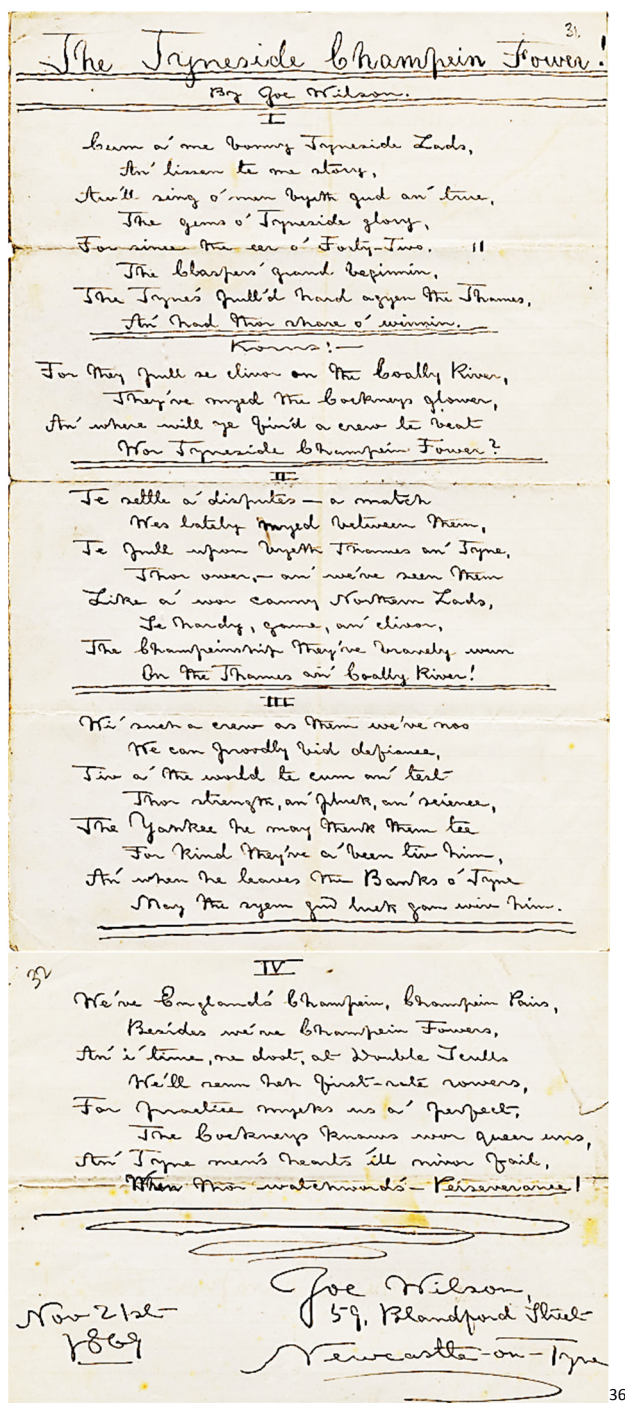 31.
The Tyneside Champein Fower!
By Joe Wilson.
I
Cum a' me bonny Tyneside Lads,
An' lissen te me story,
Aw'll sing o' men byeth gud an' true,
The gems o' Tyneside glory,
For since the eer o' Forty-Two,
The Claspers' grand beginnin,
The Tyne's pull'd hard agyen the Thames,
An' had thor share o' winnin.
Korus:—
For they pull se clivor on the Coally River,
They've myed the Cockneys glower,
An' where will ye find a crew te beat
Wor Tyneside Champein Fower?
II
Te settle a' disputes — a match
Wes lately myed between them,
Te pull upon byeth Thames an' Tyne,
Thor ower,— an' we've seen them
Like a' wor canny Northern Lads,
Se hardy, game, an' clivor,
The Champeinship they've bravely wun
On the Thames an' Coally River!
III
Wi' such a crew as them we've noo
We can proodly bid defiance,
Tiv a' the world te cum an' test
Thor strength, an' pluck, an' science,
The Yankee he may thenk them tee
For kind they've a' been tiv him,
An' when he leaves the Banks o' Tyne
May the syem gud luck gan wiv him.
32
IV
We've England's Champein, Champein Pairs,
Besides we've Champein Fowers,
An' i' time, ne doot, at Double Sculls
We'll seun heh first-rate rowers,
For practice myeks us a' perfect,
The Cockneys knaws wor queer uns,
An' Tyne men's hearts 'ill nivor fail,
When thor watchword's — Perseverance!
Joe Wilson,
Nov 21st
59, Blandford Street
1869
Newcastle-on-Tyne
36